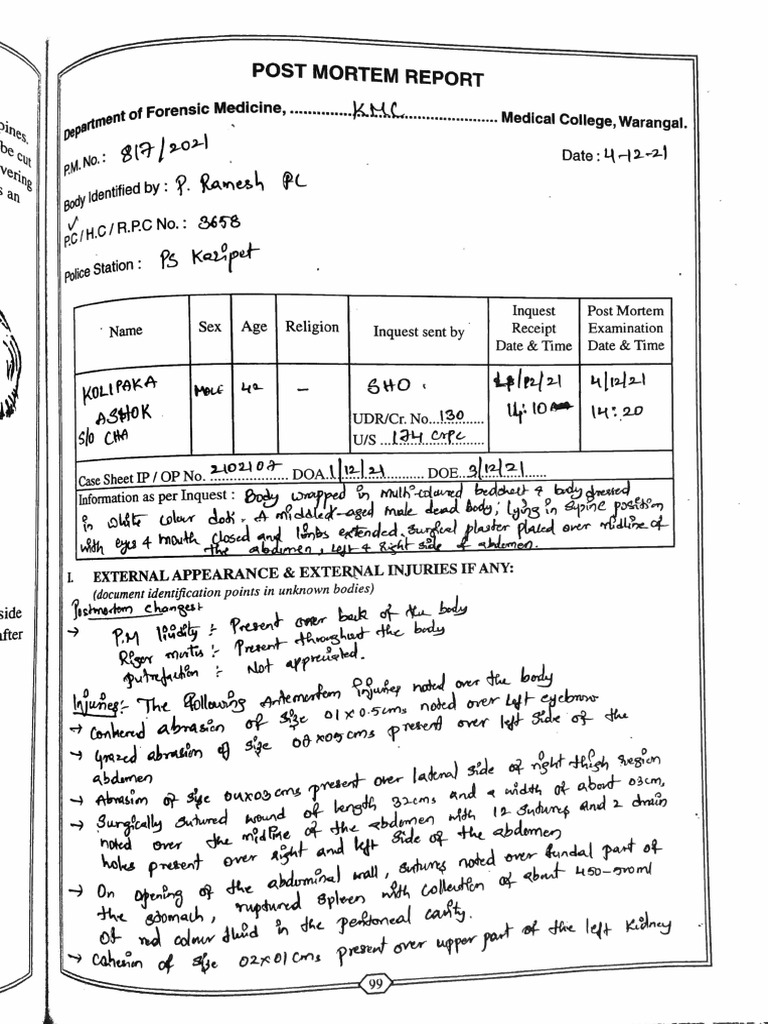 pines.
be cut
vering
s an
side
after
POST MORTEM REPORT
Department of Forensic Medicine, .............. KMC .............................. Medical College, Warangal.
P.M. No. : 817/2021
Date : 4-12-21
Body Identified by : P. Ramesh PC
P.C / H.C / R.P.C No. : 3658
Police Station : PS Kazipet
Name Sex Age Religion Inquest sent by Inquest Receipt Date & Time Post Mortem Examination Date & Time
KOLIPAKA ASHOK S/o CHA Male 42 – SHO . /12/21 14:10 4/12/21 14:20
UDR/Cr. No...130
U/S ...174 CrPC
Case Sheet IP / OP No. 2102107 DOA. 1/12/21 DOE. 3/12/21
Information as per Inquest : Body wrapped in multi-coloured bedsheet & body dressed
in white colour . A middled-aged male dead body, lying in supine position
with eyes & mouth closed and limbs extended. Surgical plaster placed over midline of
the abdomen, left & Right side of abdomen.
I. EXTERNAL APPEARANCE & EXTERNAL INJURIES IF ANY:
(document identification points in unknown bodies)
Postmortem changes:
→ P.M lividity :- Present over back of the body
Rigor mortis :- Present throughout the body
putrefaction :- Not appreciated.
Injuries:- The following Antemortem injuries noted over the body
→ abrasion of size 01x0.5cms noted over left eyebrow
→ Grazed abrasion of size cms present over left side of the
abdomen
→ Abrasion of size 04x03cms present over lateral side of right thigh region
→ Surgically sutured wound of length 32cms and a width of about 03cm,
noted over the midline of the abdomen with 12 sutures and 2 drain
holes present over right and left side of the abdomen
→ On opening of the abdominal wall, sutures noted over fundal part of
the stomach, ruptured spleen with collection of about 450-500ml
of red colour fluid in the peritoneal cavity.
→ of size 02x01cms present over upper part of the left kidney
99